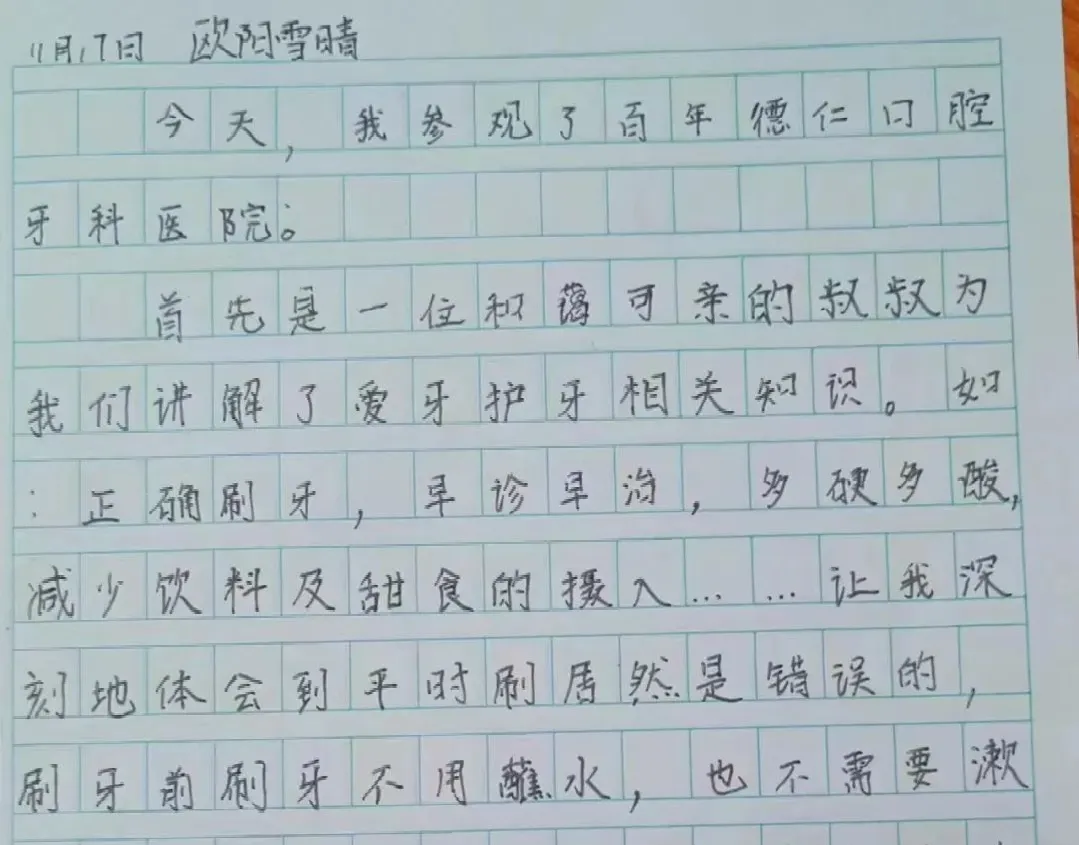 11月17日 欧阳雪晴
今天，我参观了百年德仁口腔
牙科医院。
首先是一位和蔼可亲的叔叔为
我们讲解了爱牙护牙相关知识。如
：正确刷牙，早诊早治，多硬多酸，
减少饮料及甜食的摄入……让我深
刻地体会到平时刷居然是错误的，
刷牙前刷牙不用蘸水，也不需要漱